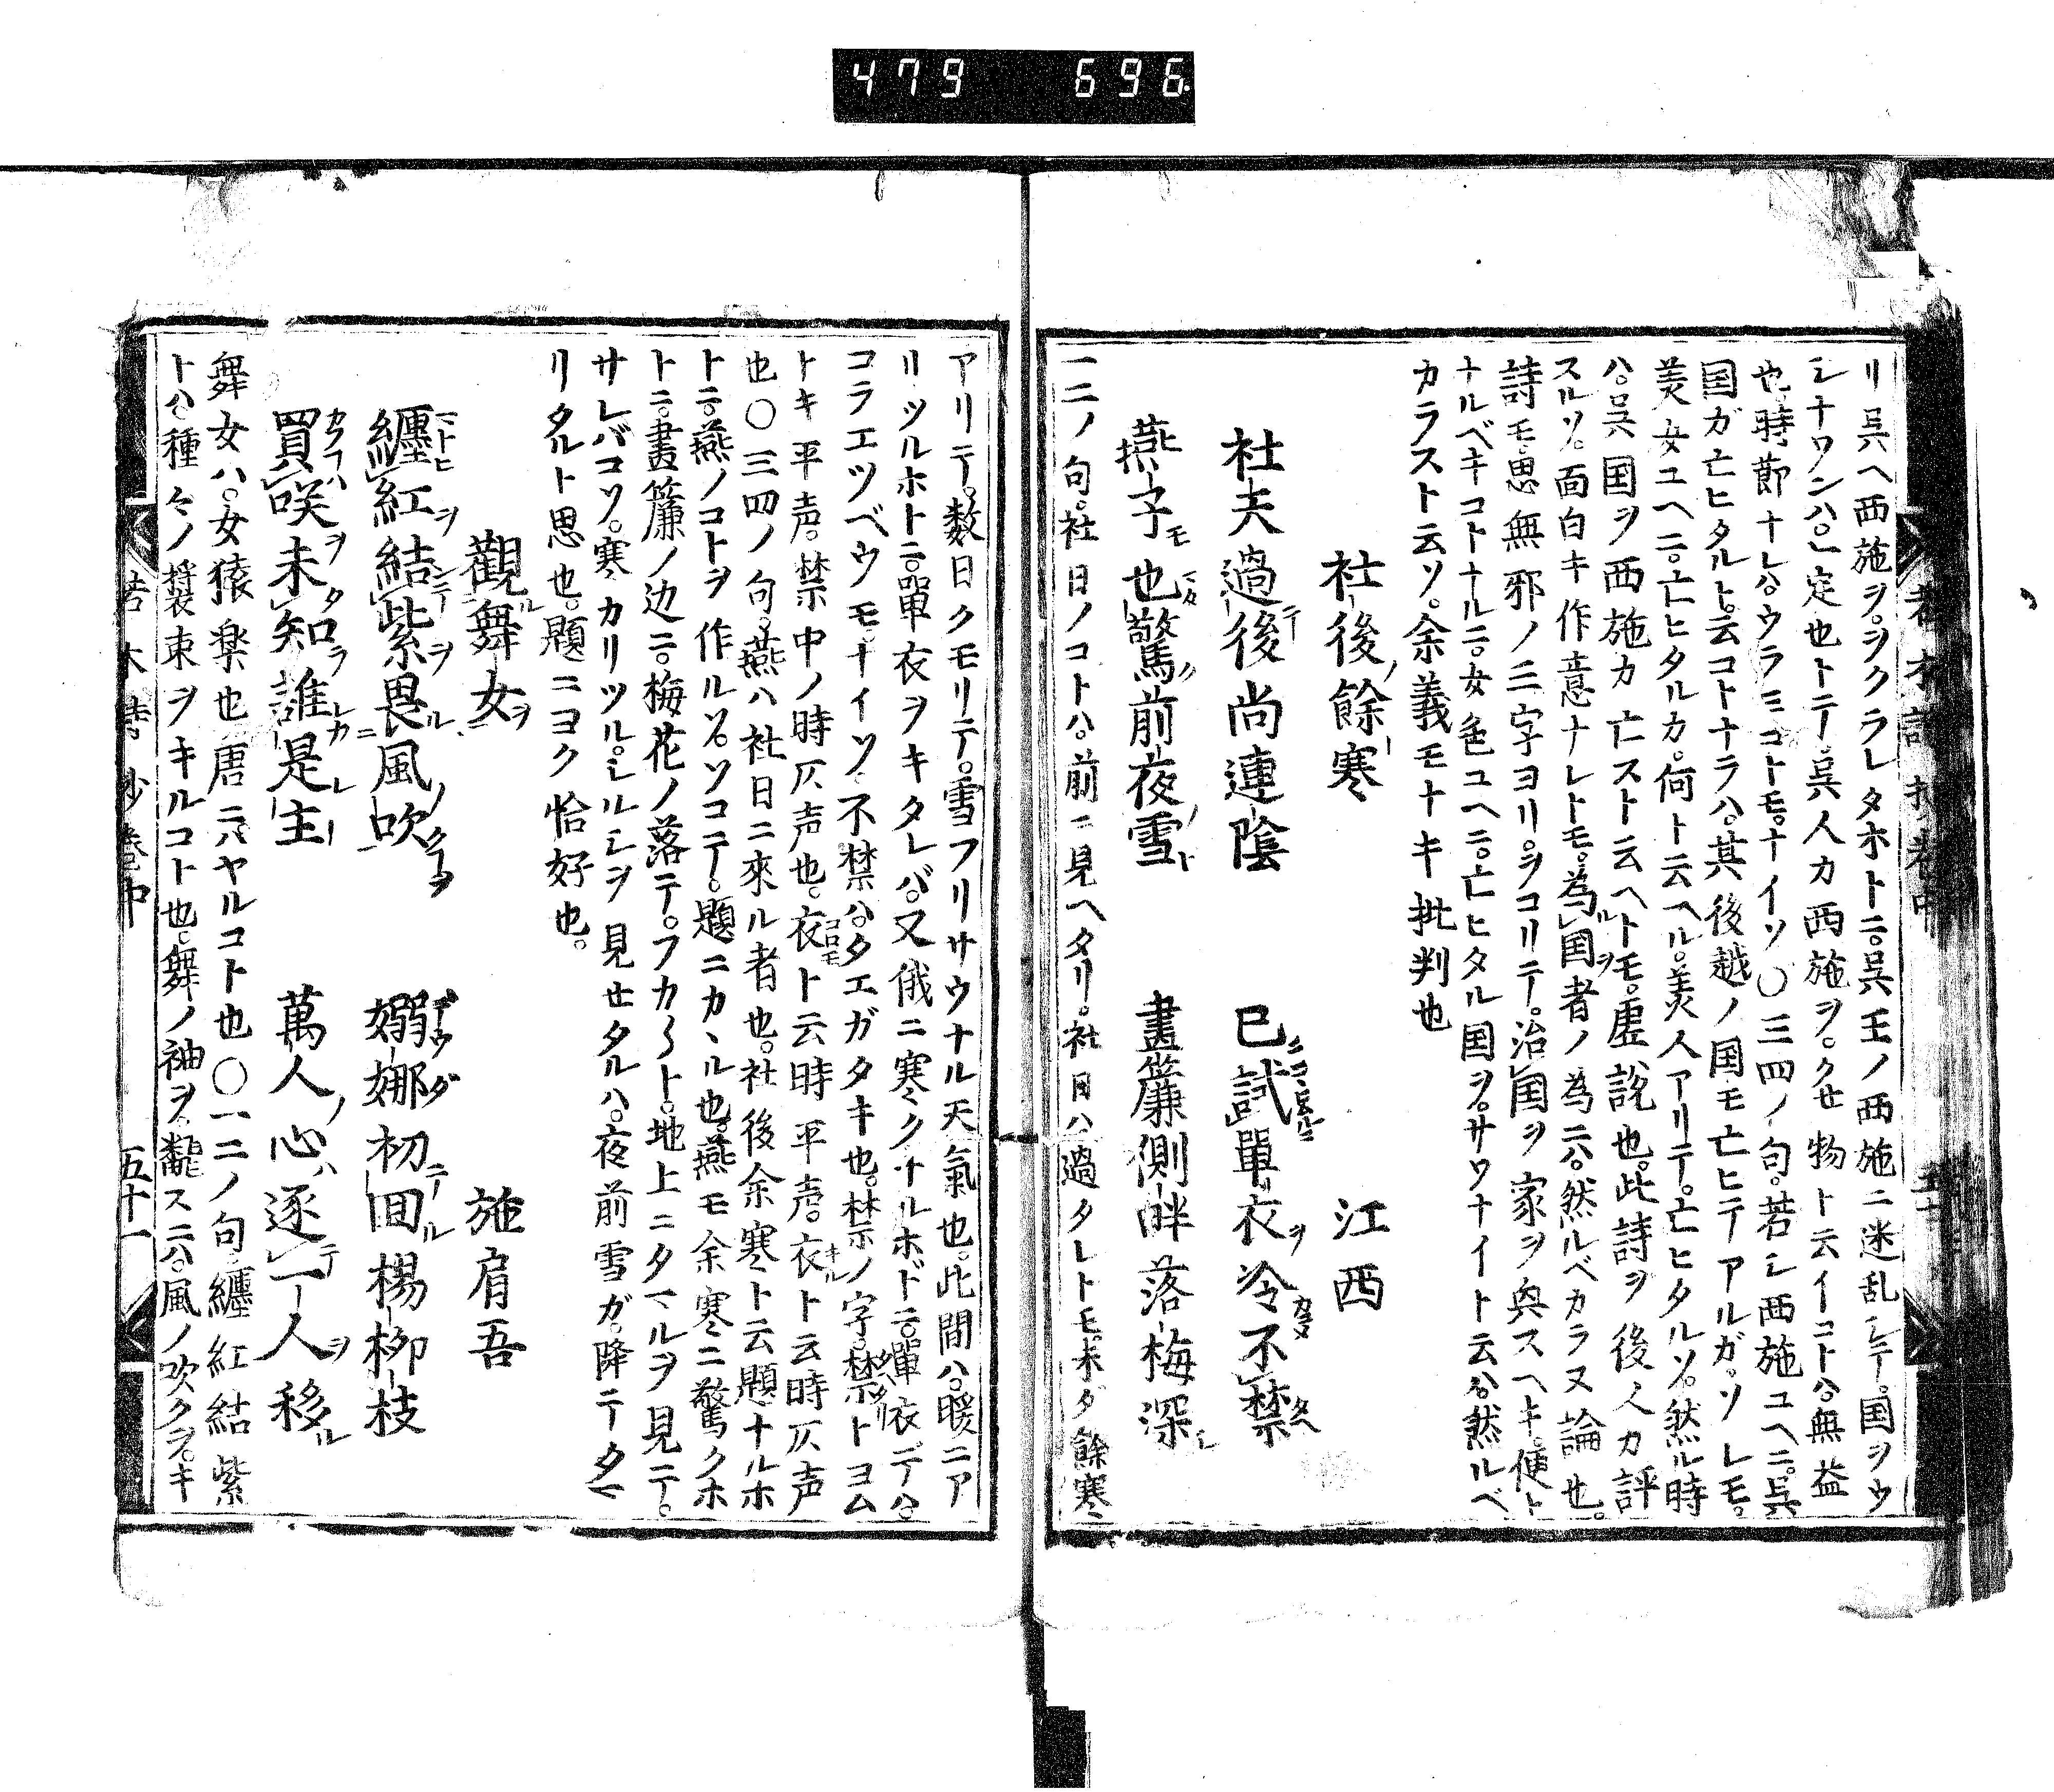 479 696
リ呉ヘ西施ヲ。ヲクラレタホトニ。呉王ノ西施ニ迷乱シテ。国ヲウ
シナワンハ。一定也トテ呉人カ西施ヲ。クせ物ト云イコトハ。無益
也。時節ナレハ。ウラミコトモ。ナイソ〇三四ノ句。若シ西施ユヘニ。呉
国ガ亡ヒタルト。云コトナラハ。其後越ノ国モ亡ヒテアルガ。ソレモ。
美女ユヘニ。亡ヒタルカ。何ト云ヘル。美人アリテ。亡ヒタルソ。然ル時
ハ。呉国ヲ西施カ亡スト云ヘトモ。虚説也。此詩ヲ後人カ評
スルソ。面白キ作意ナレトモ。為ルヲ国者ノ為ニハ。然ルベカラヌ論也。
詩モ。思無邪ノ三字ヨリ。ヲコリテ。治国ヲ家ヲ與スヘキ。便ト
ナルベキコトナルニ。女色ユヘニ。亡ヒタル国ヲ。サワナイト云ハ。然ルベ
カラスト云ソ。余義モナキ批判也
社後ノ餘寒 江西
社夫過後テ尚連陰 已試單衣ヲ冷不禁
燕子モ也驚前夜ノ雪 畫簾側畔落梅深シ
一二ノ句。社日ノコトハ。前ニ見ヘタリ。社日ハ過タレトモ。未ダ餘寒
アリテ。数日クモリテ。雪フリサウナル天氣也。此間ハ。暖ニア
リツルホトニ。單衣ヲキタレバ。又俄ニ寒クナルホドニ。單衣デハ。
コラエツベウモ。ナイソ。不禁ハ。タエガタキ也。禁ノ字。禁トヨム
トキ平声。禁中ノ時仄声也。衣コロモト云時平声。衣キルト云時仄声
也〇三四ノ句。燕ハ社日ニ來ル者也。社後余寒ト云題ナルホ
トニ。燕ノコトヲ作ルソ。ソコデ。題ニカヽル也。燕モ余寒ニ驚クホ
トニ。畫簾ノ边ニ。梅花ノ落テ。フカ〱ト。地上ニタマルヲ見テ。
サレバコソ。寒カリツル。シルシヲ見せタルハ。夜前雪ガ。降テタマ
リタルト思也。題ニヨク恰好也。
觀ル舞女ヲ 施肩吾
纏マトヒ紅ヲ結テ紫ヲ畏ル風ノ吹クヲ 嫋娜デウダ初テ回ル楊柳枝
買カフハ咲ヲ未タ知ラ誰レカ是レ主 萬人ノ心ハ逐テ一人ヲ移ル
舞女ハ。女猿楽也。唐ニハヤルコト也〇一二ノ句。纏紅結紫
トハ。種々ノ裝束ヲキルコト也。舞ノ袖ヲ。飜スニハ。風ノ吹クヲ。キ
五十一